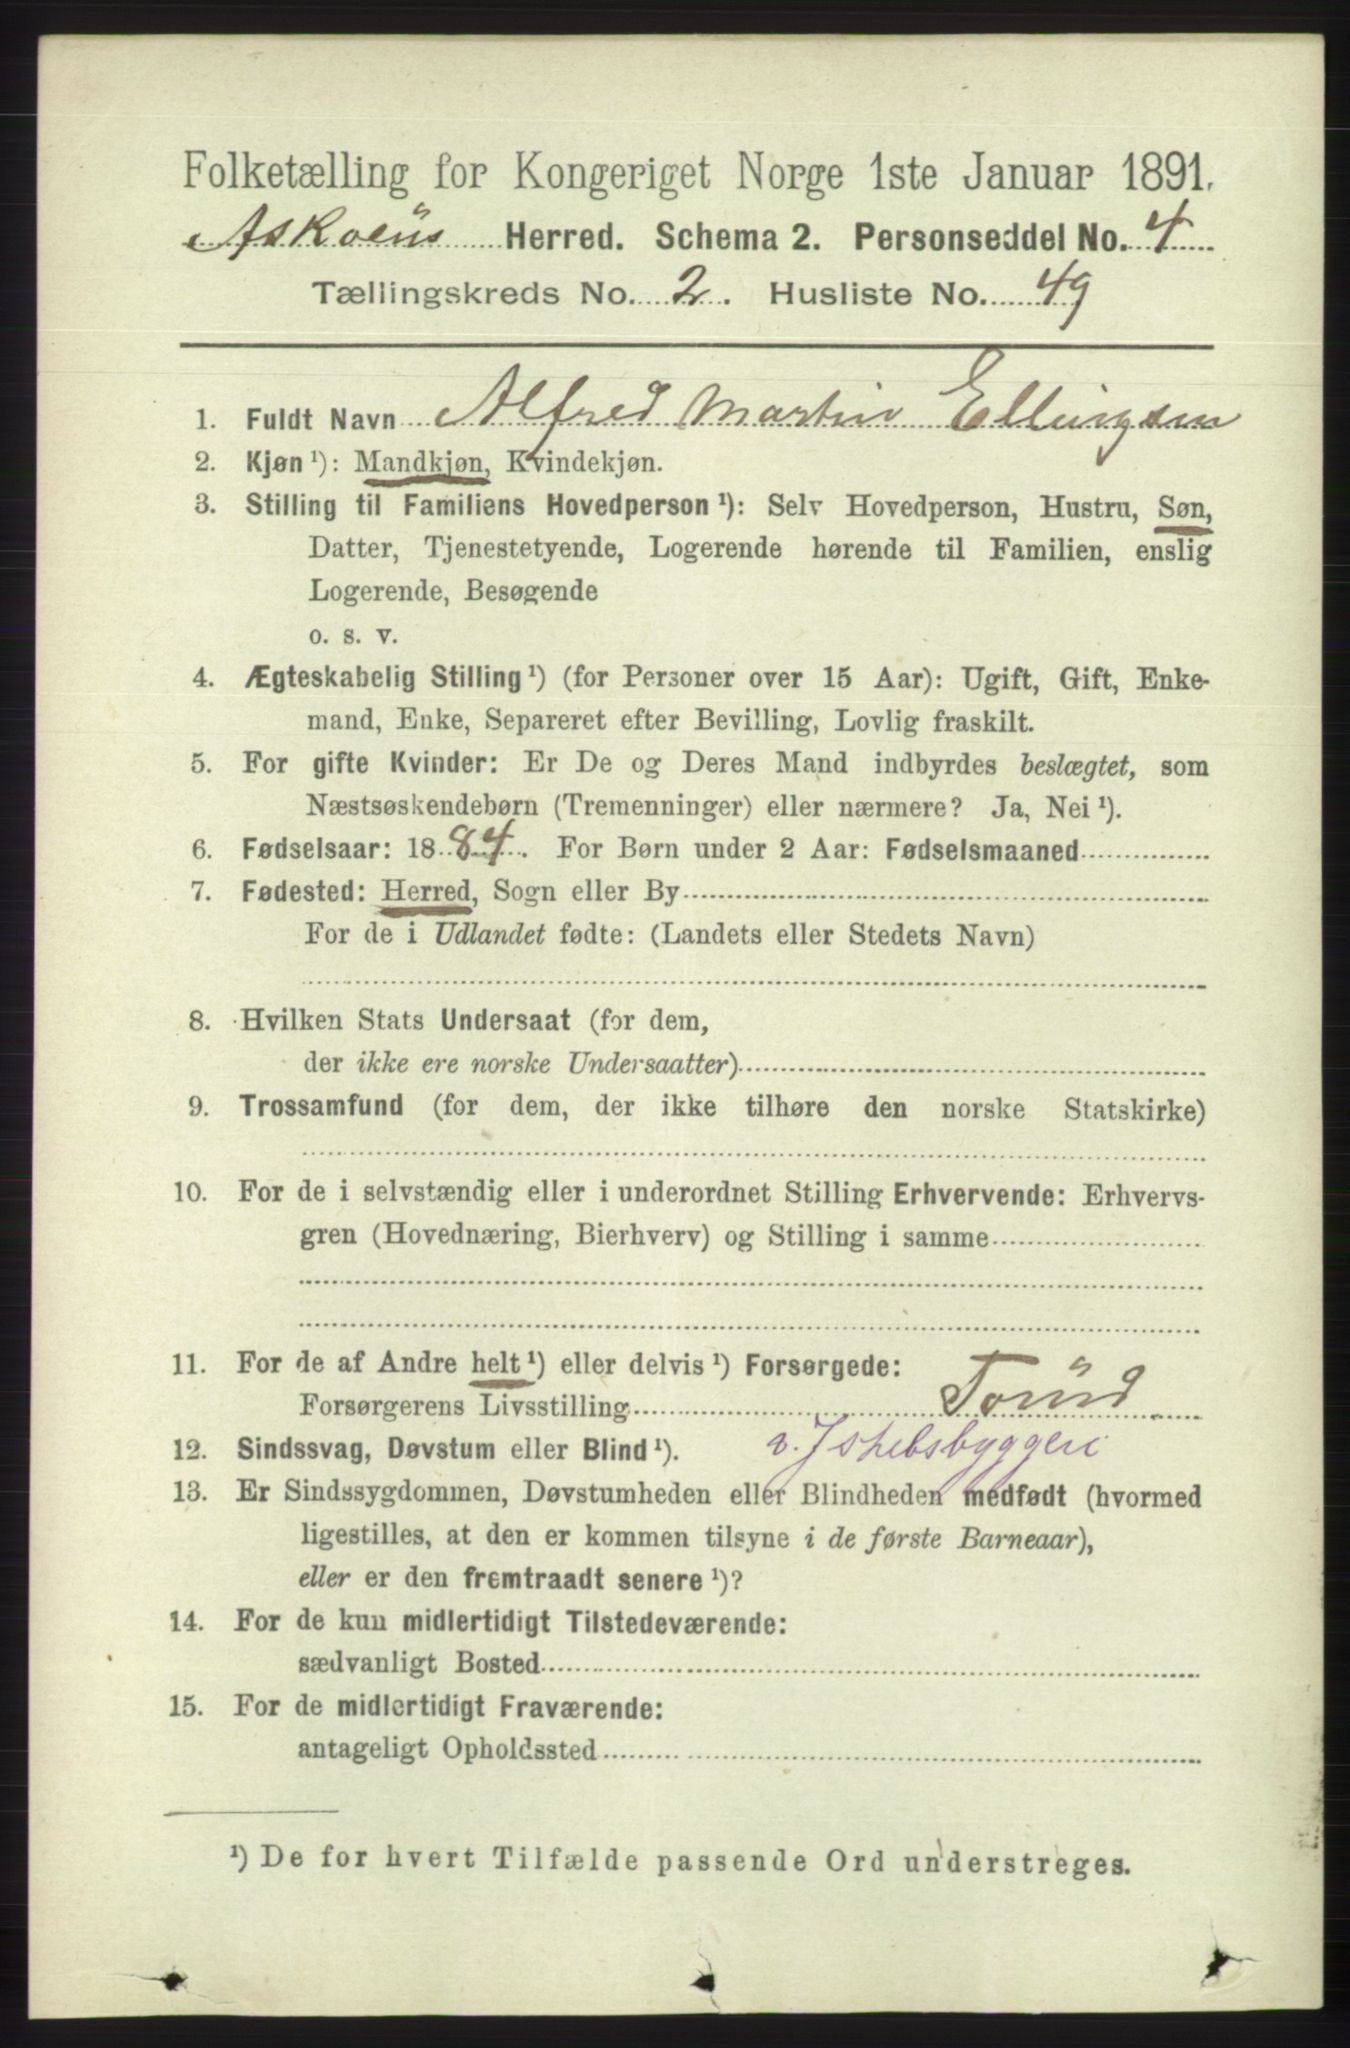 Folketælling for Kongeriget Norge 1ste Januar 1891.
Askøens Herred. Schema 2. Personseddel No. 4
Tællingskreds No. 2. Husliste No. 49
1. Fuldt Navn Alfred Martin Ellingsen
2. Kjøn ¹): Mandkjøn, Kvindekjøn.
3. Stilling til Familiens Hovedperson ¹): Selv Hovedperson, Hustru, Søn,
Datter, Tjenestetyende, Logerende hørende til Familien, enslig
Logerende, Besøgende
o. s. v.
4. Ægteskabelig Stilling ¹) (for Personer over 15 Aar): Ugift, Gift, Enke-
mand, Enke, Separeret efter Bevilling, Lovlig fraskilt.
5. For gifte Kvinder: Er De og Deres Mand indbyrdes beslægtet, som
Næstsøskendebørn (Tremenninger) eller nærmere? Ja, Nei ¹).
6. Fødselsaar: 1884. For Børn under 2 Aar: Fødselsmaaned
7. Fødested: Herred, Sogn eller By
For de i Udlandet fødte: (Landets eller Stedets Navn)
8. Hvilken Stats Undersaat (for dem,
der ikke ere norske Undersaatter)
9. Trossamfund (for dem, der ikke tilhøre den norske Statskirke)
10. For de i selvstændig eller i underordnet Stilling Erhvervende: Erhvervs-
gren (Hovednæring, Bierhverv) og Stilling i samme
11. For de af Andre helt ¹) eller delvis ¹) Forsørgede:
Forsørgerens Livsstilling
12. Sindssvag, Døvstum eller Blind ¹).
13. Er Sindssygdommen, Døvstumheden eller Blindheden medfødt (hvormed
ligestilles, at den er kommen tilsyne i de første Barneaar),
eller er den fremtraadt senere ¹)?
14. For de kun midlertidigt Tilstedeværende:
sædvanligt Bosted
15. For de midlertidigt Fraværende:
antageligt Opholdssted
¹) De for hvert Tilfælde passende Ord understreges.